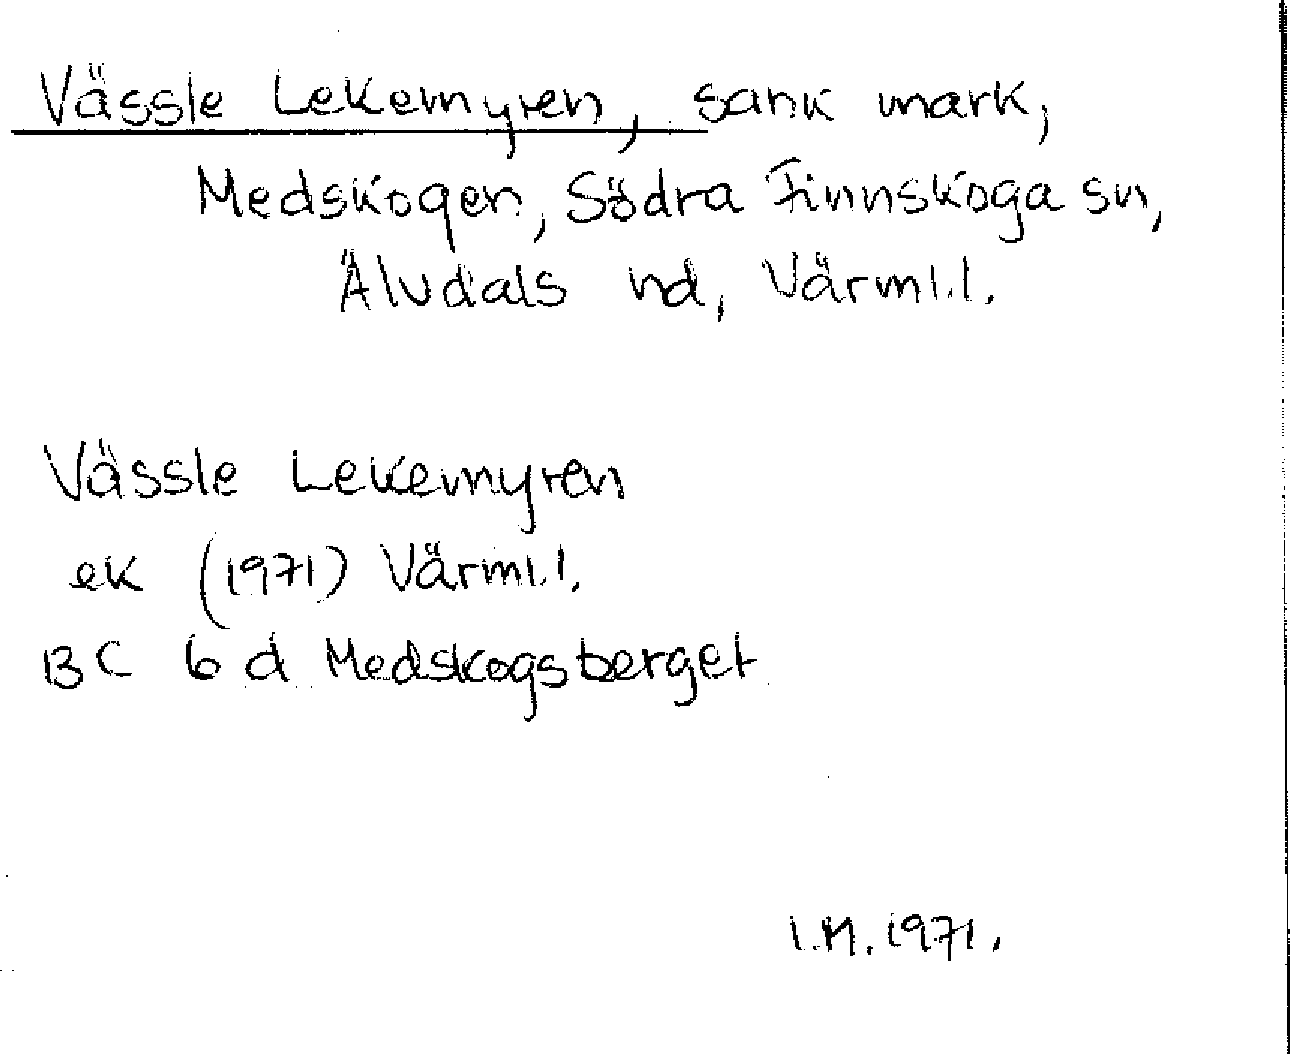 Vässle Lekemyren, sank mark,
Medskogen, Södra Finnskoga sn,
Älvdals hd, Värml.l.
Vässle Lekemyren
ek (1971) Värml.l.
BC 6 d Medskogsberget
I.M. 1971.